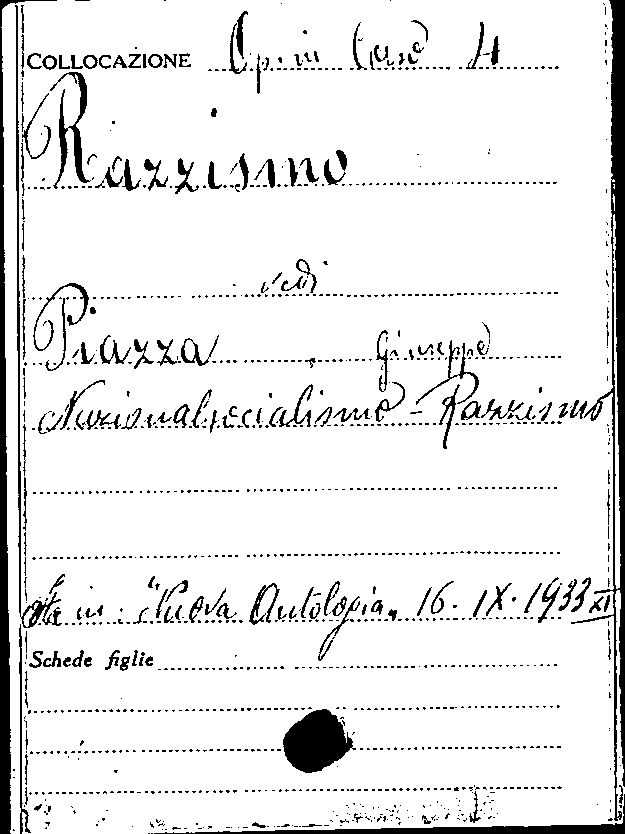 COLLOCAZIONE Op. in Caso 4
Razzismo
vedi
Piazza, Giuseppe
Nazionalsocialismo - Razzismo
in: "Nuova Antologia" 16·IX·1933 XI
Schede figlie